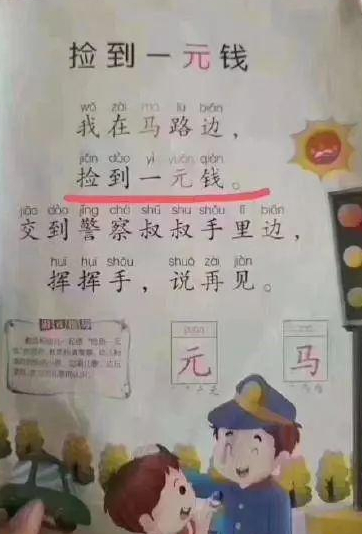 捡到一元钱
wǒ zài mǎ lù biān
我在马路边，
jiǎn dào yì yuán qián
捡到一元钱。
jiāo dào jǐng chá shū shu shǒu lǐ biān
交到警察叔叔手里边，
huī huī shǒu, shuō zài jiàn
挥挥手，说再见。
元 马